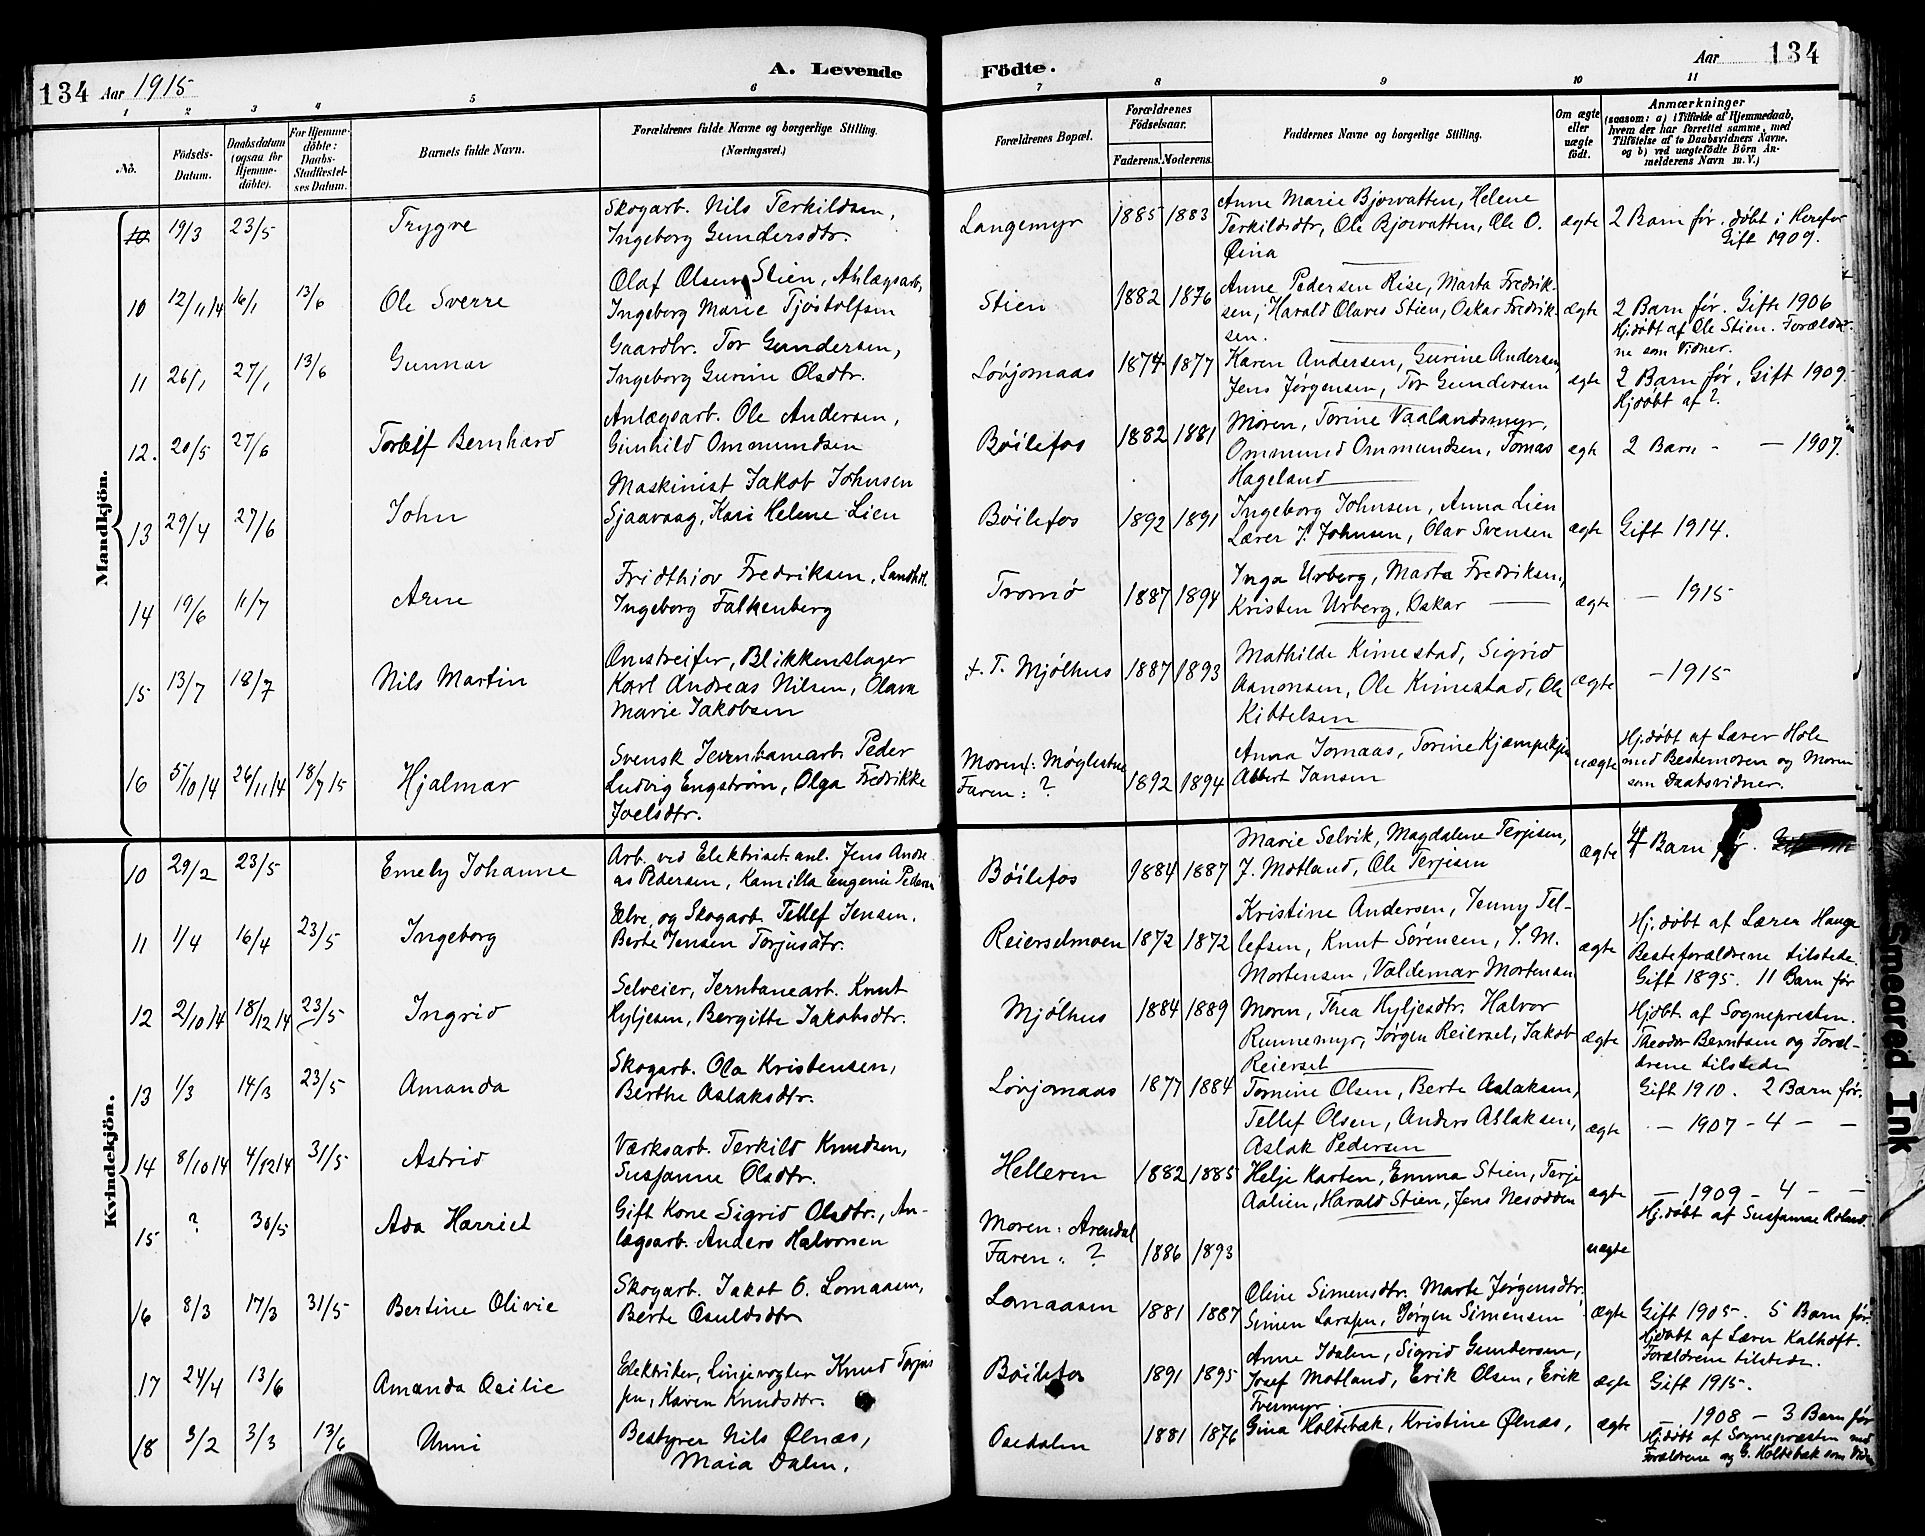 134 Aar 1915
A. Levende
Födte.
Aar 134
1 2 3 4 5 6 7 8 9 10 11
No.
Födsels-
Datum.
Daabsdatum
(ogsaa for
Hjemme-
döbte).
For Hjemme-
döbte:
Daabs-
Stadfæstel-
ses Datum.
Barnets fulde Navn.
Forældrenes fulde Navne og borgerlige Stilling.
(Næringsvei.)
Forældrenes Bopæl.
Forældrenes
Födselsaar.
Faderens. Moderens.
Faddernes Navne og borgerlige Stilling.
Om ægte
eller
uægte
födt.
Anmærkninger
(saasom: a) i Tilfælde af Hjemmedaab,
hvem der har forrettet samme, med
Tilföielse af to Daabsvidners Navne.
og b) ved uægtefödte Börn An-
melderens Navn m. V.)
Mandkjön.
10 19/3 23/5 Trygve
Skogarb. Nils Terkildsen,
Ingeborg Gundersdtr.
Langemyr 1885 1883
Anne Marie Bjorvatten, Helene
Terkildsdtr, Ole Bjorvatten, Ole O.
Øina
ægte
2 Barn før. døbt i Herefos
Gift 1909.
10 12/11 14 16/1 13/6 Ole Sverre
Olaf Olsen Stien, Anlægsarb,
Ingeborg Marie Tjøstolfsen
Stien 1882 1876
Anne Pedersen Rise, Marta Fredrik-
sen, Harald Olaves Stien, Oskar Fredrik-
sen.
ægte
2 Barn før. Gifte 1906
Hj.døbt af Ole Stien. Forældre-
ne som Vidner.
11 26/1 27/1 13/6 Gunnar
Gaardbr. Tor Gundersen,
Ingeborg Gurine Olsdtr.
Løvjomaas 1874 1877
Karen Andersen, Gurine Andersen
Jens Jørgensen, Tor Gundersen
ægte
2 Barn før, Gift 1909
Hjdøbt af ?
12. 20/5 27/6 Torleif Bernhard
Anlægsarb. Ole Andersen,
Gunhild Ommundsen
Bøilefos 1882 1881
Moren, Torine Vaalandsmyr,
Ommund Ommundsen, Tomas
Hageland
ægt
2 Barn - — 1907.
13 29/4 27/6 John
Maskinist Jakob Johnsen
Sjaavaag, Kari Helene Lien
Bøilefos 1892 1891
Ingeborg Johnsen, Anna Lien
Lærer J. Johnsen, Olav Svensen
ægte
Gift 1914.
14 19/6 11/7 Arne
Fridthiov Fredriksen, Landh.
Ingeborg Falkenberg
Tromø 1887 1894
Inga Urberg, Marta Fredriksen,
Kristen Urberg, Oskar —
ægte
— 1915
15 13/7 18/7 Nils Martin
Omstreifer, Blikkenslager
Karl Andreas Nilsen, Olava
Marie Jakobsen
f. T. Mjølhus 1887 1893
Mathilde Kimestad, Sigrid
Aanonsen, Ole Kimestad, Ole
Kittelsen
ægte
— 1915
16 5/10 14 26/11 14 18/7 15 Hjalmar
Svensk Jernbanearb. Peder
Ludvig Engstrøm, Olga Fredrikke
Joelsdtr.
Moren: Møglestue
Faren: ? 1892 1894
Anna Jomaas, Torine Kjæmpekjen
Albert Jansen
uægte
Hj.døbt af Lærer Hole
med Bestemoren og Moren
som Daabsvidner.
Kvindekjön.
10 29/2 23/5 Emely Johanne
Arb. ved Elektriset.anl. Jens Andre-
as Pedersen, Kamilla Eugenie Pedersen
Bøilefos 1884 1887
Marie Selvik, Magdalene Terjesen,
J. Motland, Ole Terjesen
ægte
4 Barn før.
11 1/4 16/4 23/5 Ingeborg
Elve, og Skogarb. Tellef Jensen,
Berte Jensen Torjusdtr.
Reierselmoen 1872 1872
Kristine Andersen, Jenny Tel-
lefsen, Knut Sørensen, J. M.
Mortensen, Valdemar Mortensen
ægte
Hj.døbt af Lærer Hauge
Besteforældrene tilstede.
Gift 1895. 11 Barn før
12 2/10 14 18/12 14 23/5 Ingrid
Selveier, Jernbanearb. Knut
Kyljesen, Bergitte Jakobsdtr.
Mjølhus 1884 1889
Moren, Thea Kyljesdtr. Halvor
Runnemyr, Jørgen Reiersel, Jakob
Reiersel
ægte
Hjdøbt. af Sognepresten.
Theodor Berntsen og Foræl-
drene tilstede
Gift 1910. 2 Barn før.
13 1/3 14/3 23/5 Amanda
Skogarb. Ola Kristensen,
Berthe Aslaksdtr.
Løvjomaas 1877 1884
Tomine Olsen, Berte Aslaksen,
Tellef Olsen, Anders Aslaksen,
Aslak Pedersen
ægte
— 1907 - 4 — —
14 8/10 14 4/12 14 31/5 Astrid
Værksarb. Terkild Knudsen,
Susjanne Olsdtr.
Helleren 1882 1885
Helje Karten, Emma Stien, Terje
Aalien, Harald Stien, Jens Nesodden
ægte
— 1909 - 4 — —
Hj.døbt af Susjanne Roland.
15 ? 30/5 Ada Harriet
Gift Kone Sigrid Olsdtr., An-
lægsarb. Anders Halvorsen
Moren: Arendal
Faren: ? 1886 1893
uægte
16 8/3 17/3 31/5 Bertine Olivie
Skogarb. Jakob O. Lomaasen,
Berte Osuldsdtr
Lomaasen 1881 1887
Oline Simensdtr. Marte Jørgensdtr.
Simen Larssen, Jørgen Simensen
ægte
Gift 1905. 5 Barn før
Hjdøbt af Lærer Kalhoft.
Forældrene tilstede.
17 24/4 13/6 Amanda Osilie
Elektriker, Linjevogter Knud Torjus
sen, Karen Knudsdtr.
Bøilefos 1891 1895
Anne Idalen, Sigrid Gundersen,
Josef Motland, Erik Olsen, Erik
Tvermyr
ægte
Gift 1915.
18 3/2 3/3 13/6 Unni
Bestyrer Nils Ølnæs,
Maia Dalen.
Osedalen 1881 1876
Gina Holtebæk, Kristine Ølnæs,
ægte
— 1908 — 3 Barn før
Hj.døbt af Sognepræsten med
Forældrene og G. Holtebæk som Vidn
Smeared Ink